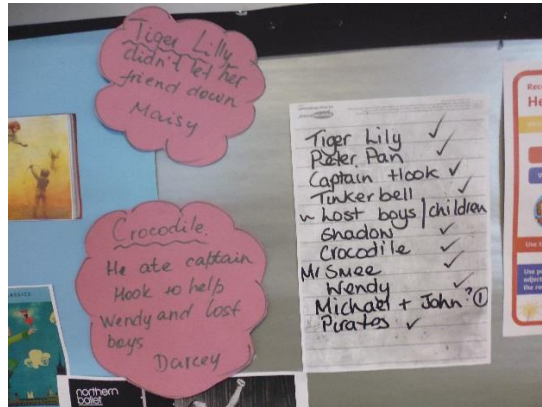 Tiger Lilly
didn't let her
friend down
Maisy
Crocodile.
He ate captain
Hook to help
Wendy and lost
boys
Darcey
Tiger Lily ✓
Peter Pan ✓
Captain Hook ✓
Tinkerbell ✓
Lost boys | children
Shadow ✓
Crocodile ✓
Mr Smee ✓
Wendy ✓
Michael + John? ①
Pirates ✓
northern
ballet